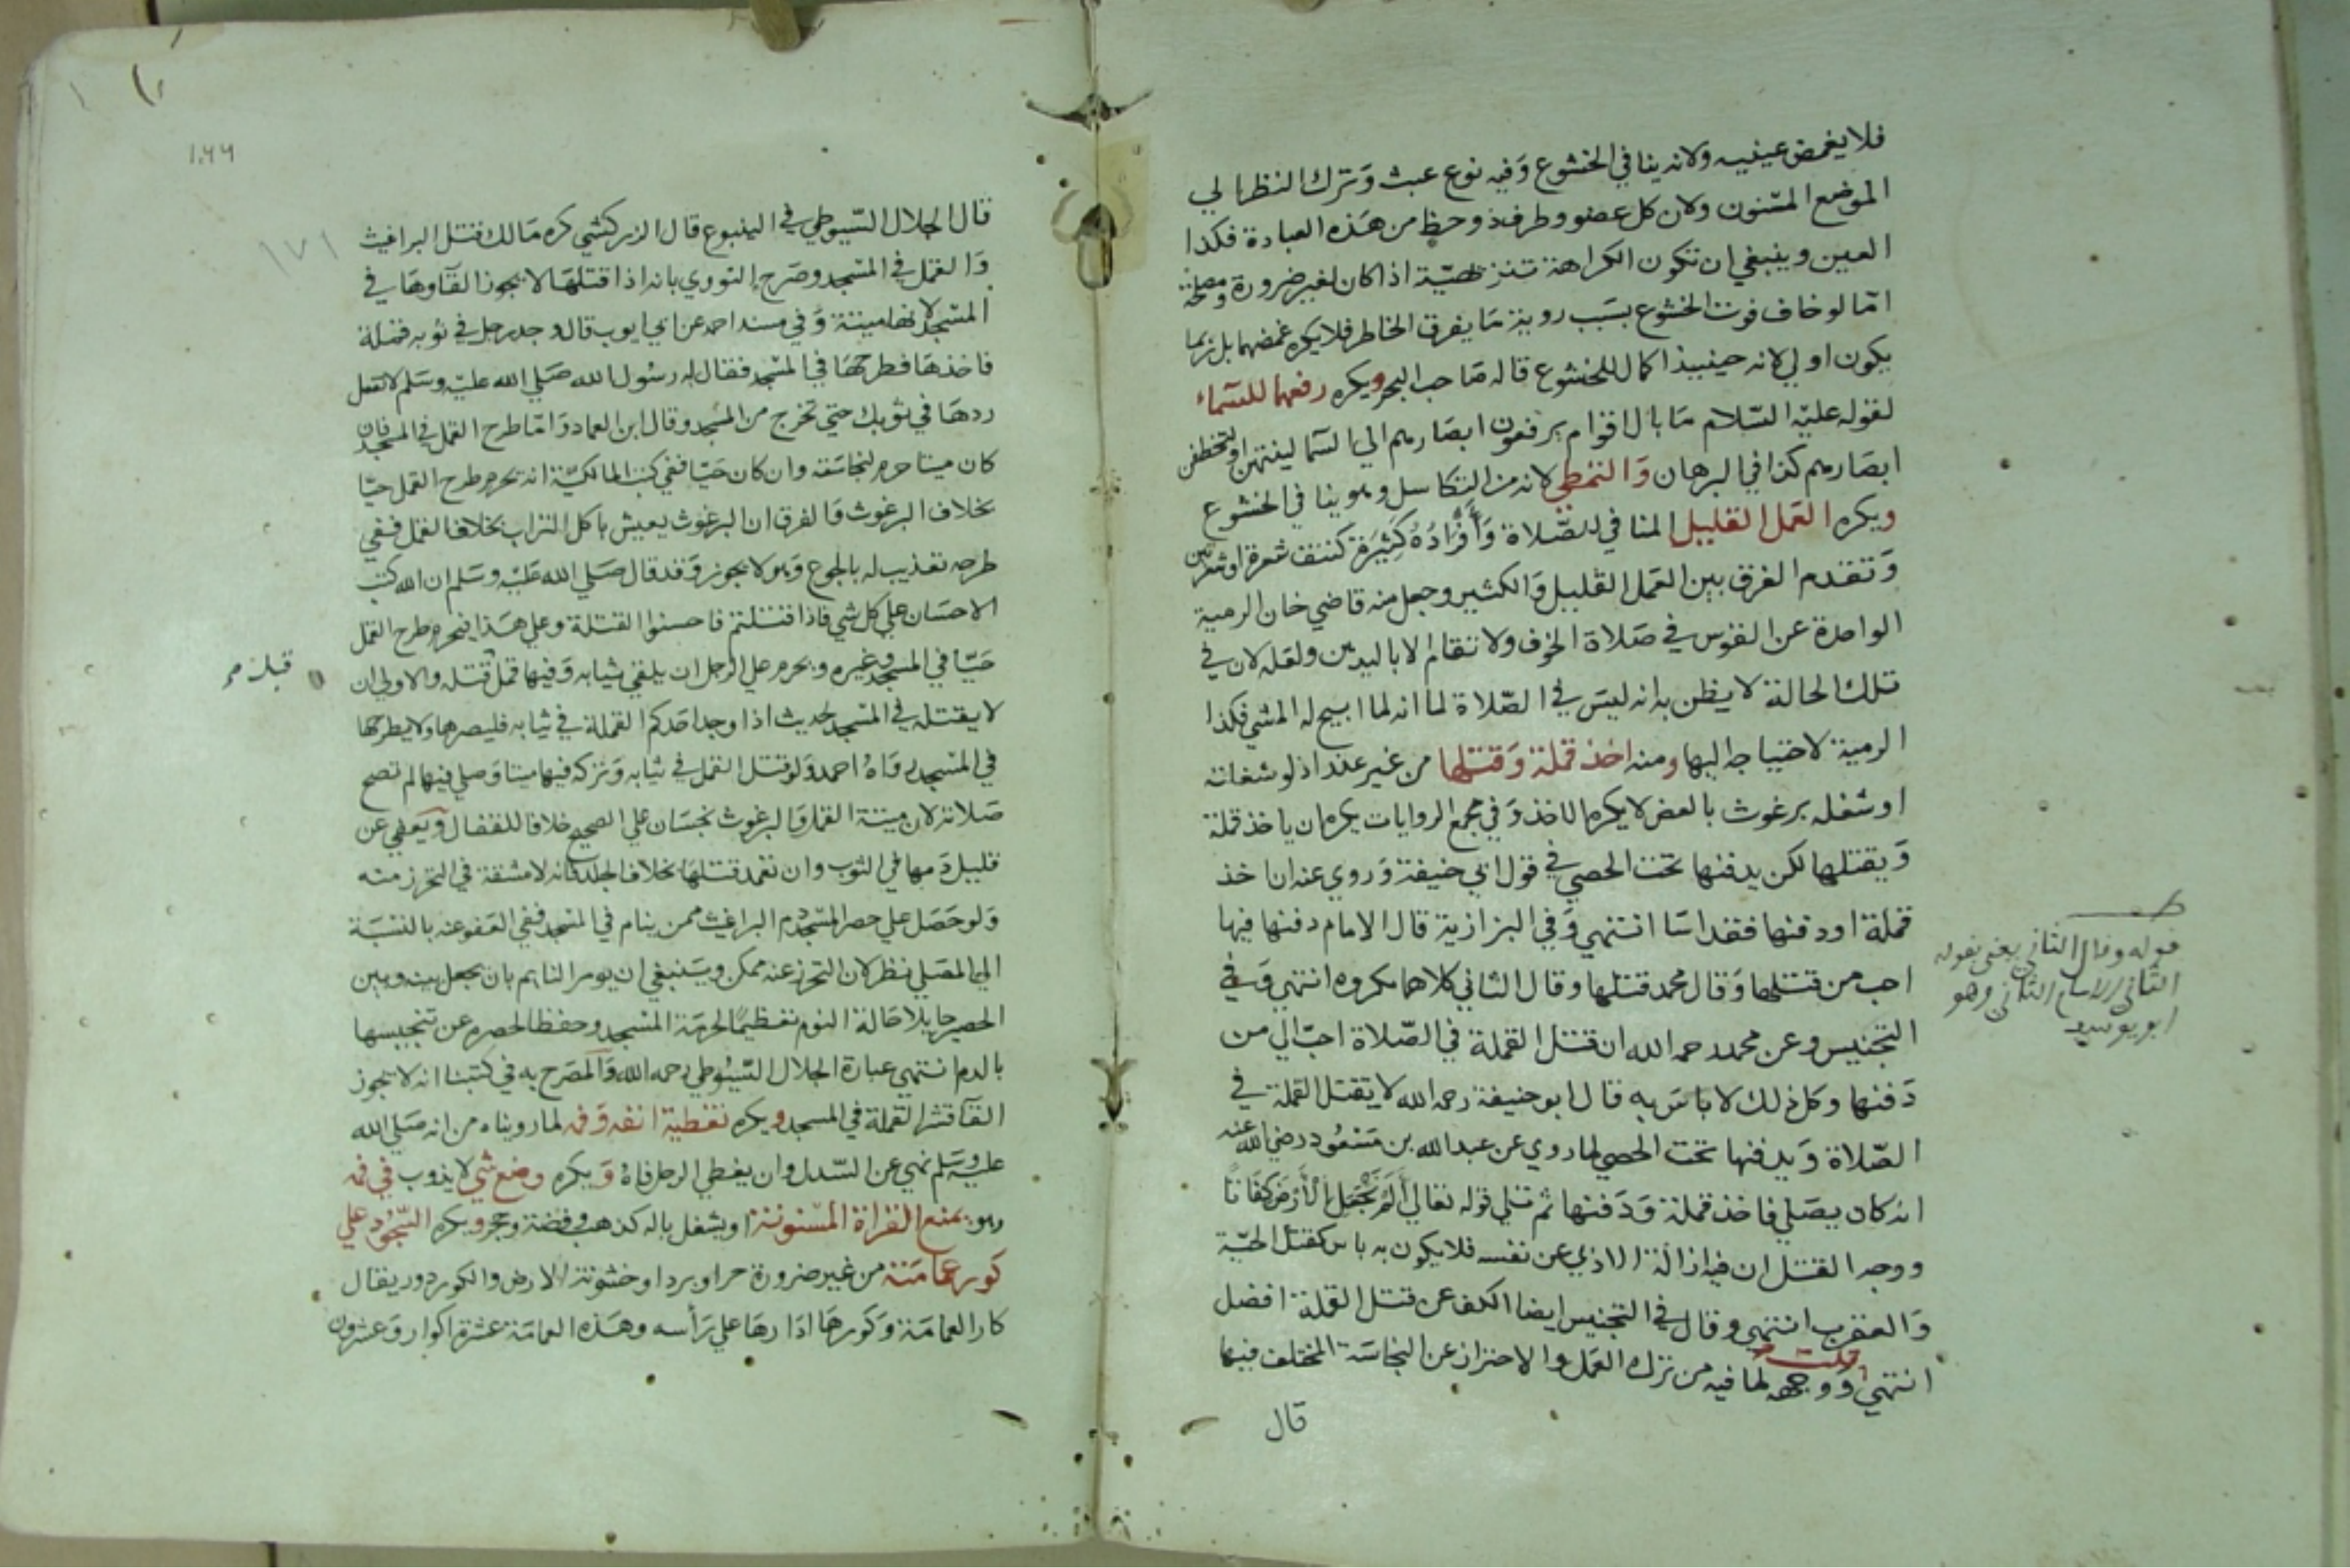 فلا يغمض عينيه ولانه ينافي الخشوع وفيه نوع عبث وترك النظر الي
الموضع المسنون ولان كل عضو وطرف ذو حظ من هذه العبادة فكذا
العين وينبغي ان تكون الكراهة تنزيهية اذا كان لغير ضرورة ومصلحة
امّا لو خاف فوت الخشوع بسبب روية ما يفرق الخاطر فلا يكره غمضهما بل ربما
يكون اولي لانه حينيذ اكمال للخشوع قاله صاحب البحر ويكره رفعهما للسّماء
لقوله عليه السّلام ما بال اقوام يرفعون ابصارهم الي السّما لينتهن او لتخطفن
ابصارهم كذا في البرهان والتمطي لانه من التكاسل وهو ينافي الخشوع
ويكره العمل القليل المنافي للصّلاة وَأَفْرَادُهُ كَثِيرَة كنتف شعرة او شعرتين
وتقدم الفرق بين العمل القليل والكثير وجعل منه قاضي خان الرمية
الواحدة عن القوس في صلاة الخوف ولا تقام الا باليدين ولعله لان في
تلك الحالة لا يظن به انه ليس في الصّلاة لما انه لما ابيح له المشي فكذا
الرمية لاحتياجه اليها ومنه اخذ قملة وقتلها من غير عذر اذ لو شغلته
او شغله برغوث بالعض لا يكره الاخذ وفي مجمع الروايات يكره ان ياخذ قملة
ويقتلها لكن يدفنها تحت الحصي في قول ابي حنيفة وروي عنه ان اخذ
قملة او دفنها فقد اسا انتهي وفي البزازية قال الامام دفنها فيها
احب من قتلها وقال محمد قتلها وقال الثاني كلاهما مكروه انتهي وفي
التجنيس وعن محمد رحمه الله ان قتل القملة في الصّلاة احبّ الي من
دفنها وكل ذلك لا باس به قال ابو حنيفة رحمه الله لا يقتل القملة في
الصّلاة ويدفنها تحت الحصي لما روي عن عبد الله بن مسعود رضي الله عنه
انه كان يصلي فاخذ قملة ودفنها ثم تلي قوله تعالي أَلَمْ نَجْعَلِ الْأَرْضَ كِفَاتًا
ووجه القتل ان فيه ازالة الاذي عن نفسه فلا يكون به باس كقتل الحيّة
والعقرب انتهي وقال في التجنيس ايضا الكف عن قتل القملة افضل
انتهي قلت ووجهه لما فيه من ترك العمل والاحتراز عن النجاسة المختلف فيها
قال
قوله وقال الثاني يعني بقوله
الثاني الامام الثاني وهو
ابو يوسف
١٧١
قال الجلال السّيوطي في الينبوع قال الزركشي كره مالك قتل البراغيث
والقمل في المسجد وصرح النووي بانه اذا قتلها لا يجوز القآوها في
المسجد لانها ميتة وفي مسند احمد عن ابي ايوب قال وجد رجل في ثوبه قملة
فاخذها فطرحها في المسجد فقال له رسول الله صلي الله عليه وسلم لا تفعل
ردها في ثوبك حتي تخرج من المسجد وقال ابن العماد وامّا طرح القمل في المسجد فان
كان ميتا حرم لنجاسته وان كان حيّا ففي كتب المالكيّة انه يحرم طرح القمل حيّا
بخلاف البرغوث والفرق ان البرغوث يعيش باكل التراب بخلاف القمل ففي
طرحه تعذيب له بالجوع وهو لا يجوز وقد قال صلي الله عليه وسلم ان الله كتب
الاحسان علي كل شي فاذا قتلتم فاحسنوا القتلة وعلي هذا فيحرم طرح القمل
حيّا في المسجد وغيره ويحرم علي الرجل ان يلقي ثيابه وفيها قمل قتله والاولي ان
لا يقتله في المسجد لحديث اذا وجد احدكم القملة في ثيابه فليصرها ولا يطرحها
في المسجد رواهُ احمد ولو قتل القمل في ثيابه وتركه فيها ميتا وصلي فيها لم تصح
صلاته لان ميتة القمل والبرغوث نجسان علي الصحيح خلافا للقفال ويعفي عن
قليل دمها في الثوب وان تعمد قتلها بخلاف الجلد فانه لا مشقة في التحرز منه
ولو حصل علي حصر المسجد دم البراغيث ممن ينام في المسجد ففي العفو عنه بالنسبة
الي المصلي نظر لان التحرز عنه ممكن وينبغي ان يومر النايم بان يجعل بينه وبين
الحصير حايلا حالة النوم تعظيمًا لحرمة المسجد وحفظا لحصره عن تنجيسها
بالدم انتهي عبارة الجلال السّيُوطي رحمه الله والمصرح به في كتبنا انه لا يجوز
القآ قشر القملة في المسجد ويكره تغطية انفه وفمه لما رويناه من انه صلي الله
عليه وسلم نهي عن السّدل وان يغطي الرجل فاهُ ويكره وضع شي لا يذوب في فمه
وهو يمنع القراة المسنونة او يشغل باله كذهب وفضة وحجر ويكره السّجُود علي
كور عمامته من غير ضرورة حر او برد او خشونة الارض والكور دور يقال
كار العمامة وكورها ادارها علي رأسه وهذه العمامة عشرة اكوار وعشرون